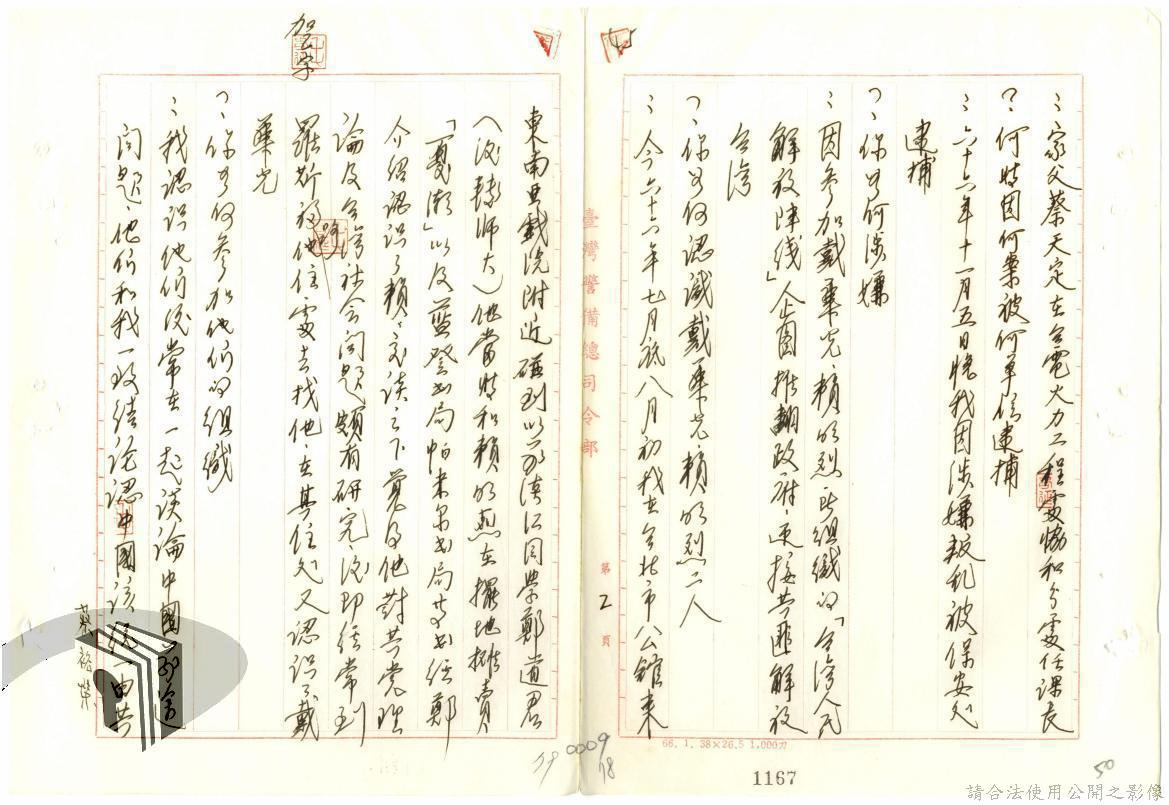 ：家父蔡天定在台電火力工程處協和分處任課長
？何時因何案被何單位逮捕
：六十六年十一月五日晚我因涉嫌叛乱被保安处
逮捕
？你為何涉嫌
：因參加戴華光、賴明烈此組織的「台湾人民
解放陣线」企圖推翻政府迎接共匪解放
台湾
？你如何認識戴華光、賴明烈二人
：今六十六年七月底八月初我在台北市公館東
東南亞戲院附近碰到以前淡江同學鄭道君
(後轉師大)他當時和賴明烈在擺地攤賣
「夏潮」以及蓝燈书局帕米尔书局等书经鄭
介紹認识了賴、交谈之下覺得他對共党理
論及台湾社会问題頗有研究後即经常到
羅斯福路他住處去找他在其住处又認识了戴
華光
？你如何參加他们的組織
：我認识他们後常在一起谈論中國
问題他们和我一致结论認中國该统一由共
加一字
蔡裕榮
臺灣警備總司令部
第2頁
66.1.38×26.5 1,000刀
0009
1167
50
45
78
請合法使用公開之影像